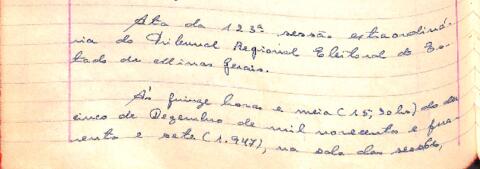 Ata da 123ª sessão extraordiná-
ria do Tribunal Regional Eleitoral do Es-
tado de Minas Gerais.
Ás quinze horas e meia (15,30 hs) do dia
cinco de Dezembro de mil novecentos e qua-
renta e sete (1.947), na sala das sessões,